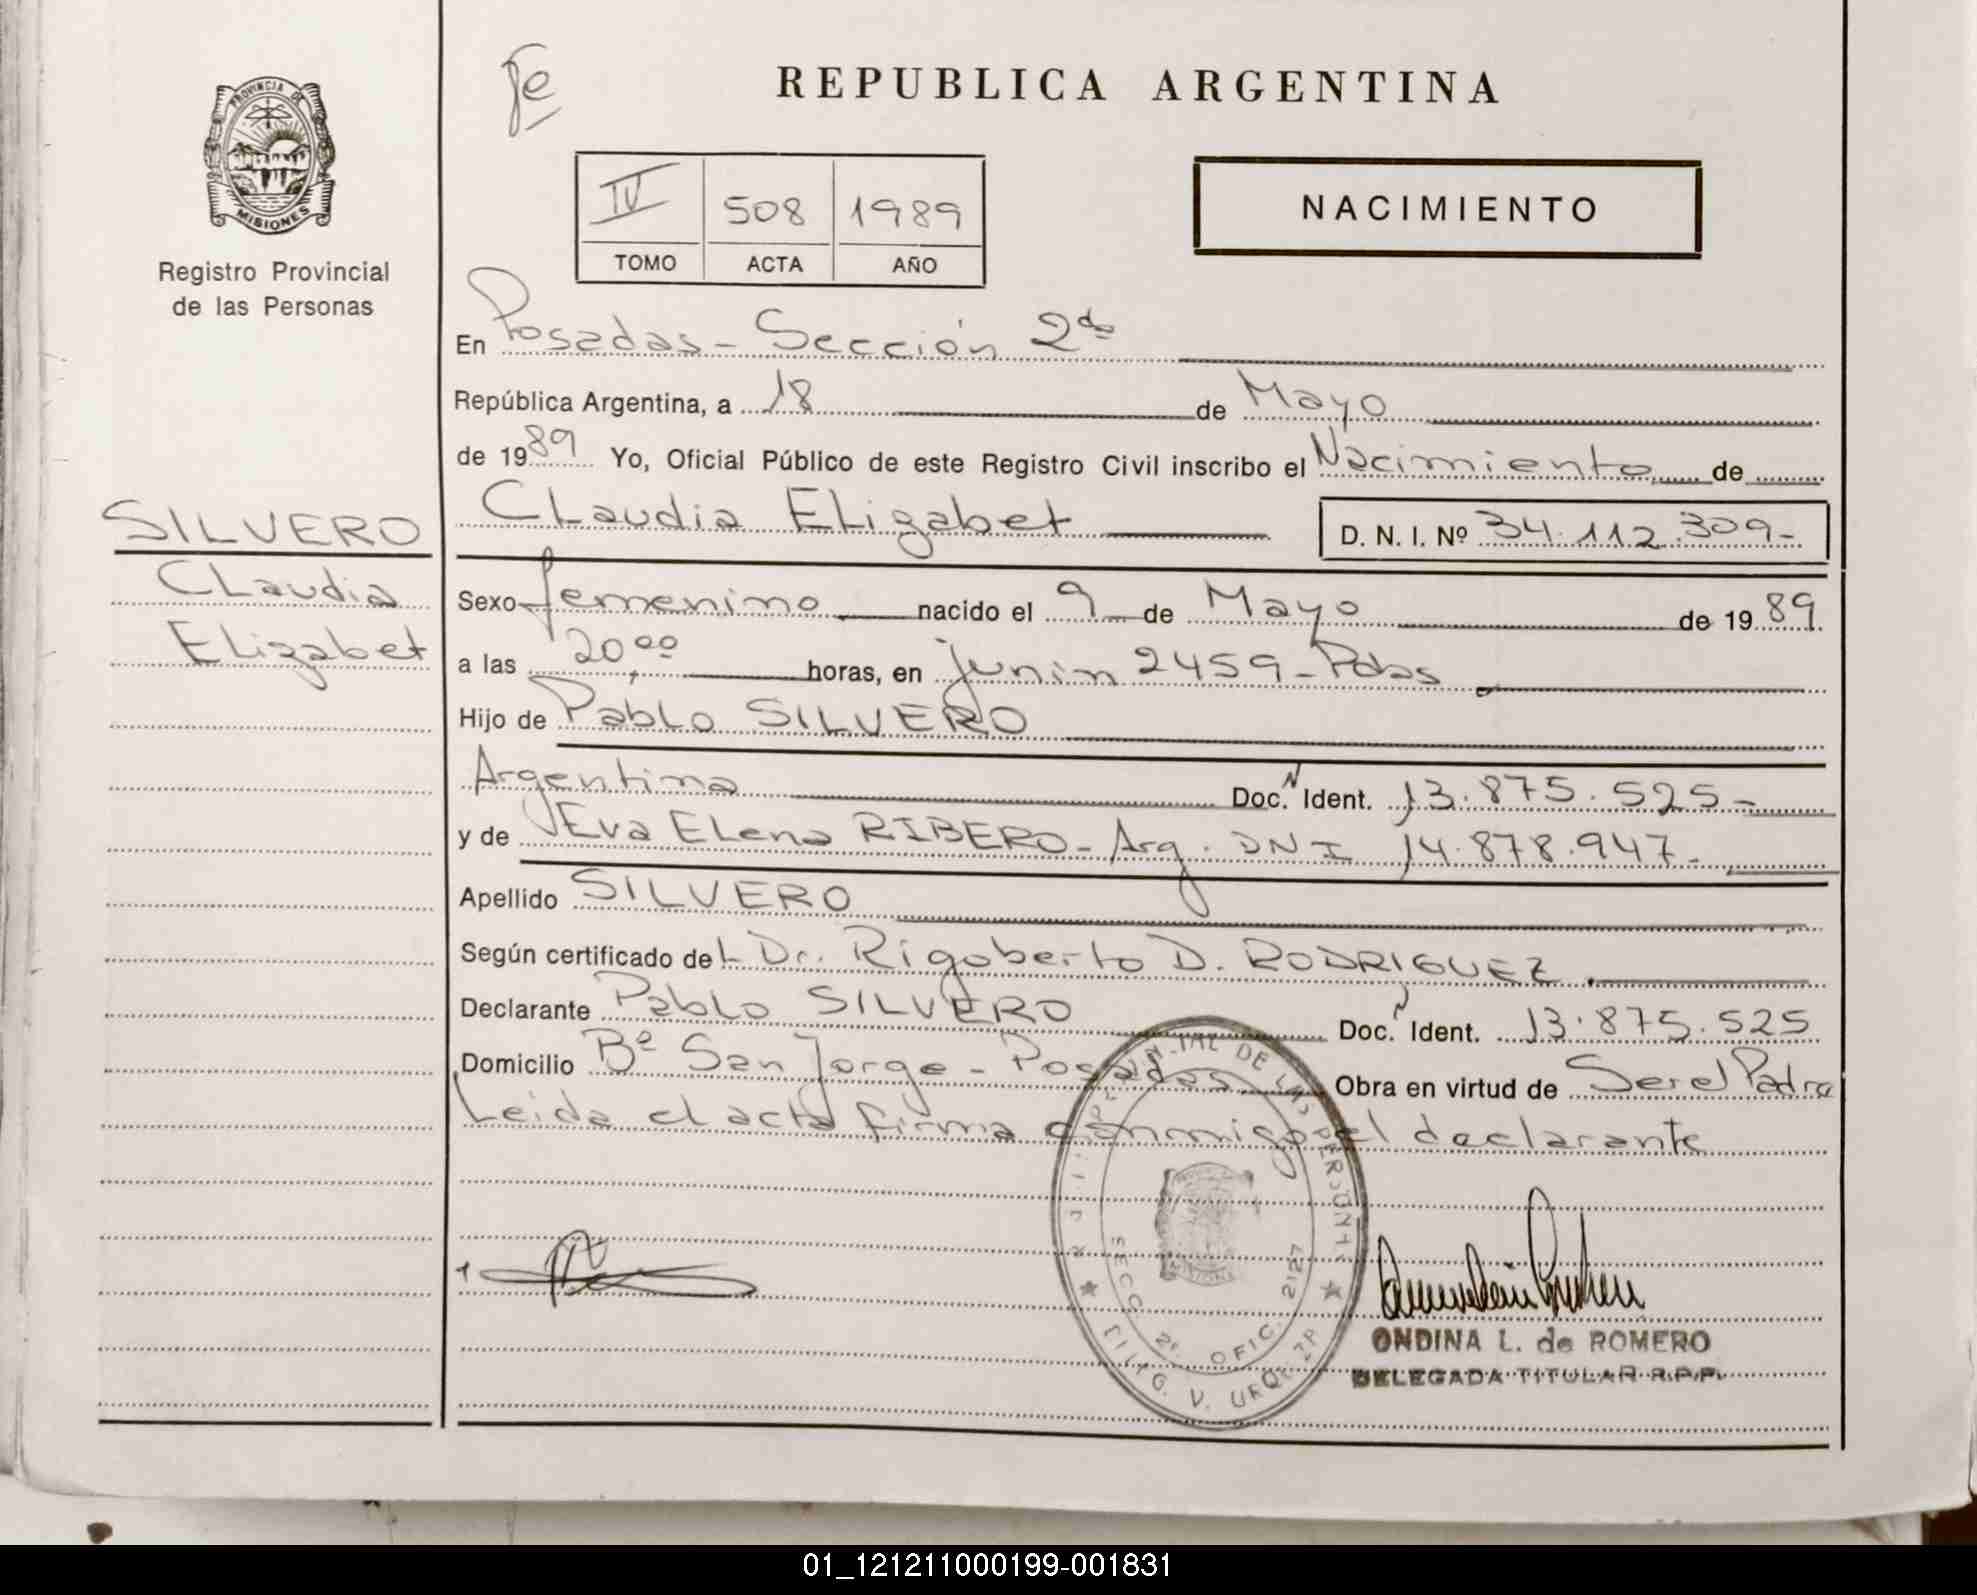 PROVINCIA DE
MISIONES
Registro Provincial
de las Personas
SILVERO
Claudia
Elizabet
REPUBLICA ARGENTINA
IV 508 1989
TOMO ACTA AÑO
NACIMIENTO
En Posadas - Sección 2da
República Argentina, a 18 de Mayo
de 1989 Yo, Oficial Público de este Registro Civil inscribo el Nacimiento de
Claudia Elizabet D. N. I. Nº 34.112.309-
Sexo femenino nacido el 9 de Mayo de 1989
a las 20,00 horas, en Junin 2459 - Pdas
Hijo de Pablo SILVERO
Argentina Doc. N Ident. 13.875.525-
y de Eva Elena RIBERO - Arg. DNI 14.878.947-
Apellido SILVERO
Según certificado del Dr. Rigoberto D. RODRIGUEZ
Declarante Pablo SILVERO Doc. N Ident. 13.875.525
Domicilio Bº San Jorge - Posadas Obra en virtud de Ser el Padre
Leida el acta firma conmigo el declarante
SECC. 2ª. OFIC. 2127
ONDINA L. de ROMERO
DELEGADA TITULAR R.P.P.
01_121211000199-001831